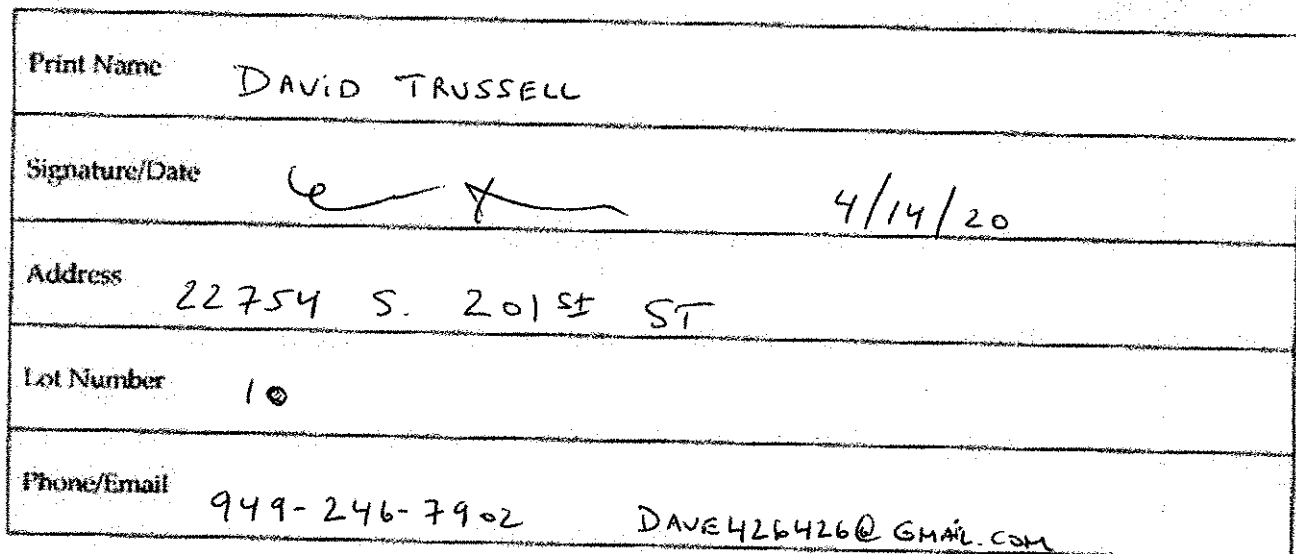 Print Name DAViD TRUSSELL
Signature/Date 4/14/20
Address 22754 S. 201st ST
Lot Number 10
Phone/Email 949-246-7902 DAVE426426@GMAiL.COM